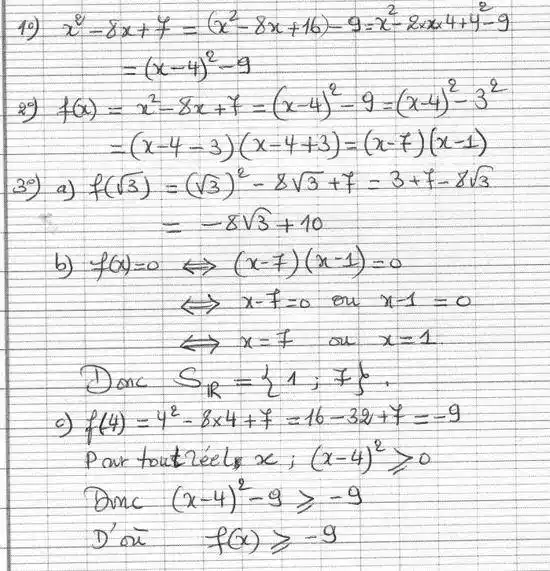 1º) x² - 8x + 7 = (x² - 8x + 16) - 9 = x² - 2×x×4 + 4² - 9
= (x - 4)² - 9
2º) f(x) = x² - 8x + 7 = (x - 4)² - 9 = (x - 4)² - 3²
= (x - 4 - 3)(x - 4 + 3) = (x - 7)(x - 1)
3º) a) f(√3) = (√3)² - 8√3 + 7 = 3 + 7 - 8√3
= -8√3 + 10
b) f(x) = 0 ⟺ (x - 7)(x - 1) = 0
⟺ x - 7 = 0 ou x - 1 = 0
⟺ x = 7 ou x = 1
Donc S_ℝ = {1 ; 7}.
c) f(4) = 4² - 8×4 + 7 = 16 - 32 + 7 = -9
Pour tout réel x ; (x - 4)² ⩾ 0
Donc (x - 4)² - 9 ⩾ -9
D'où f(x) ⩾ -9